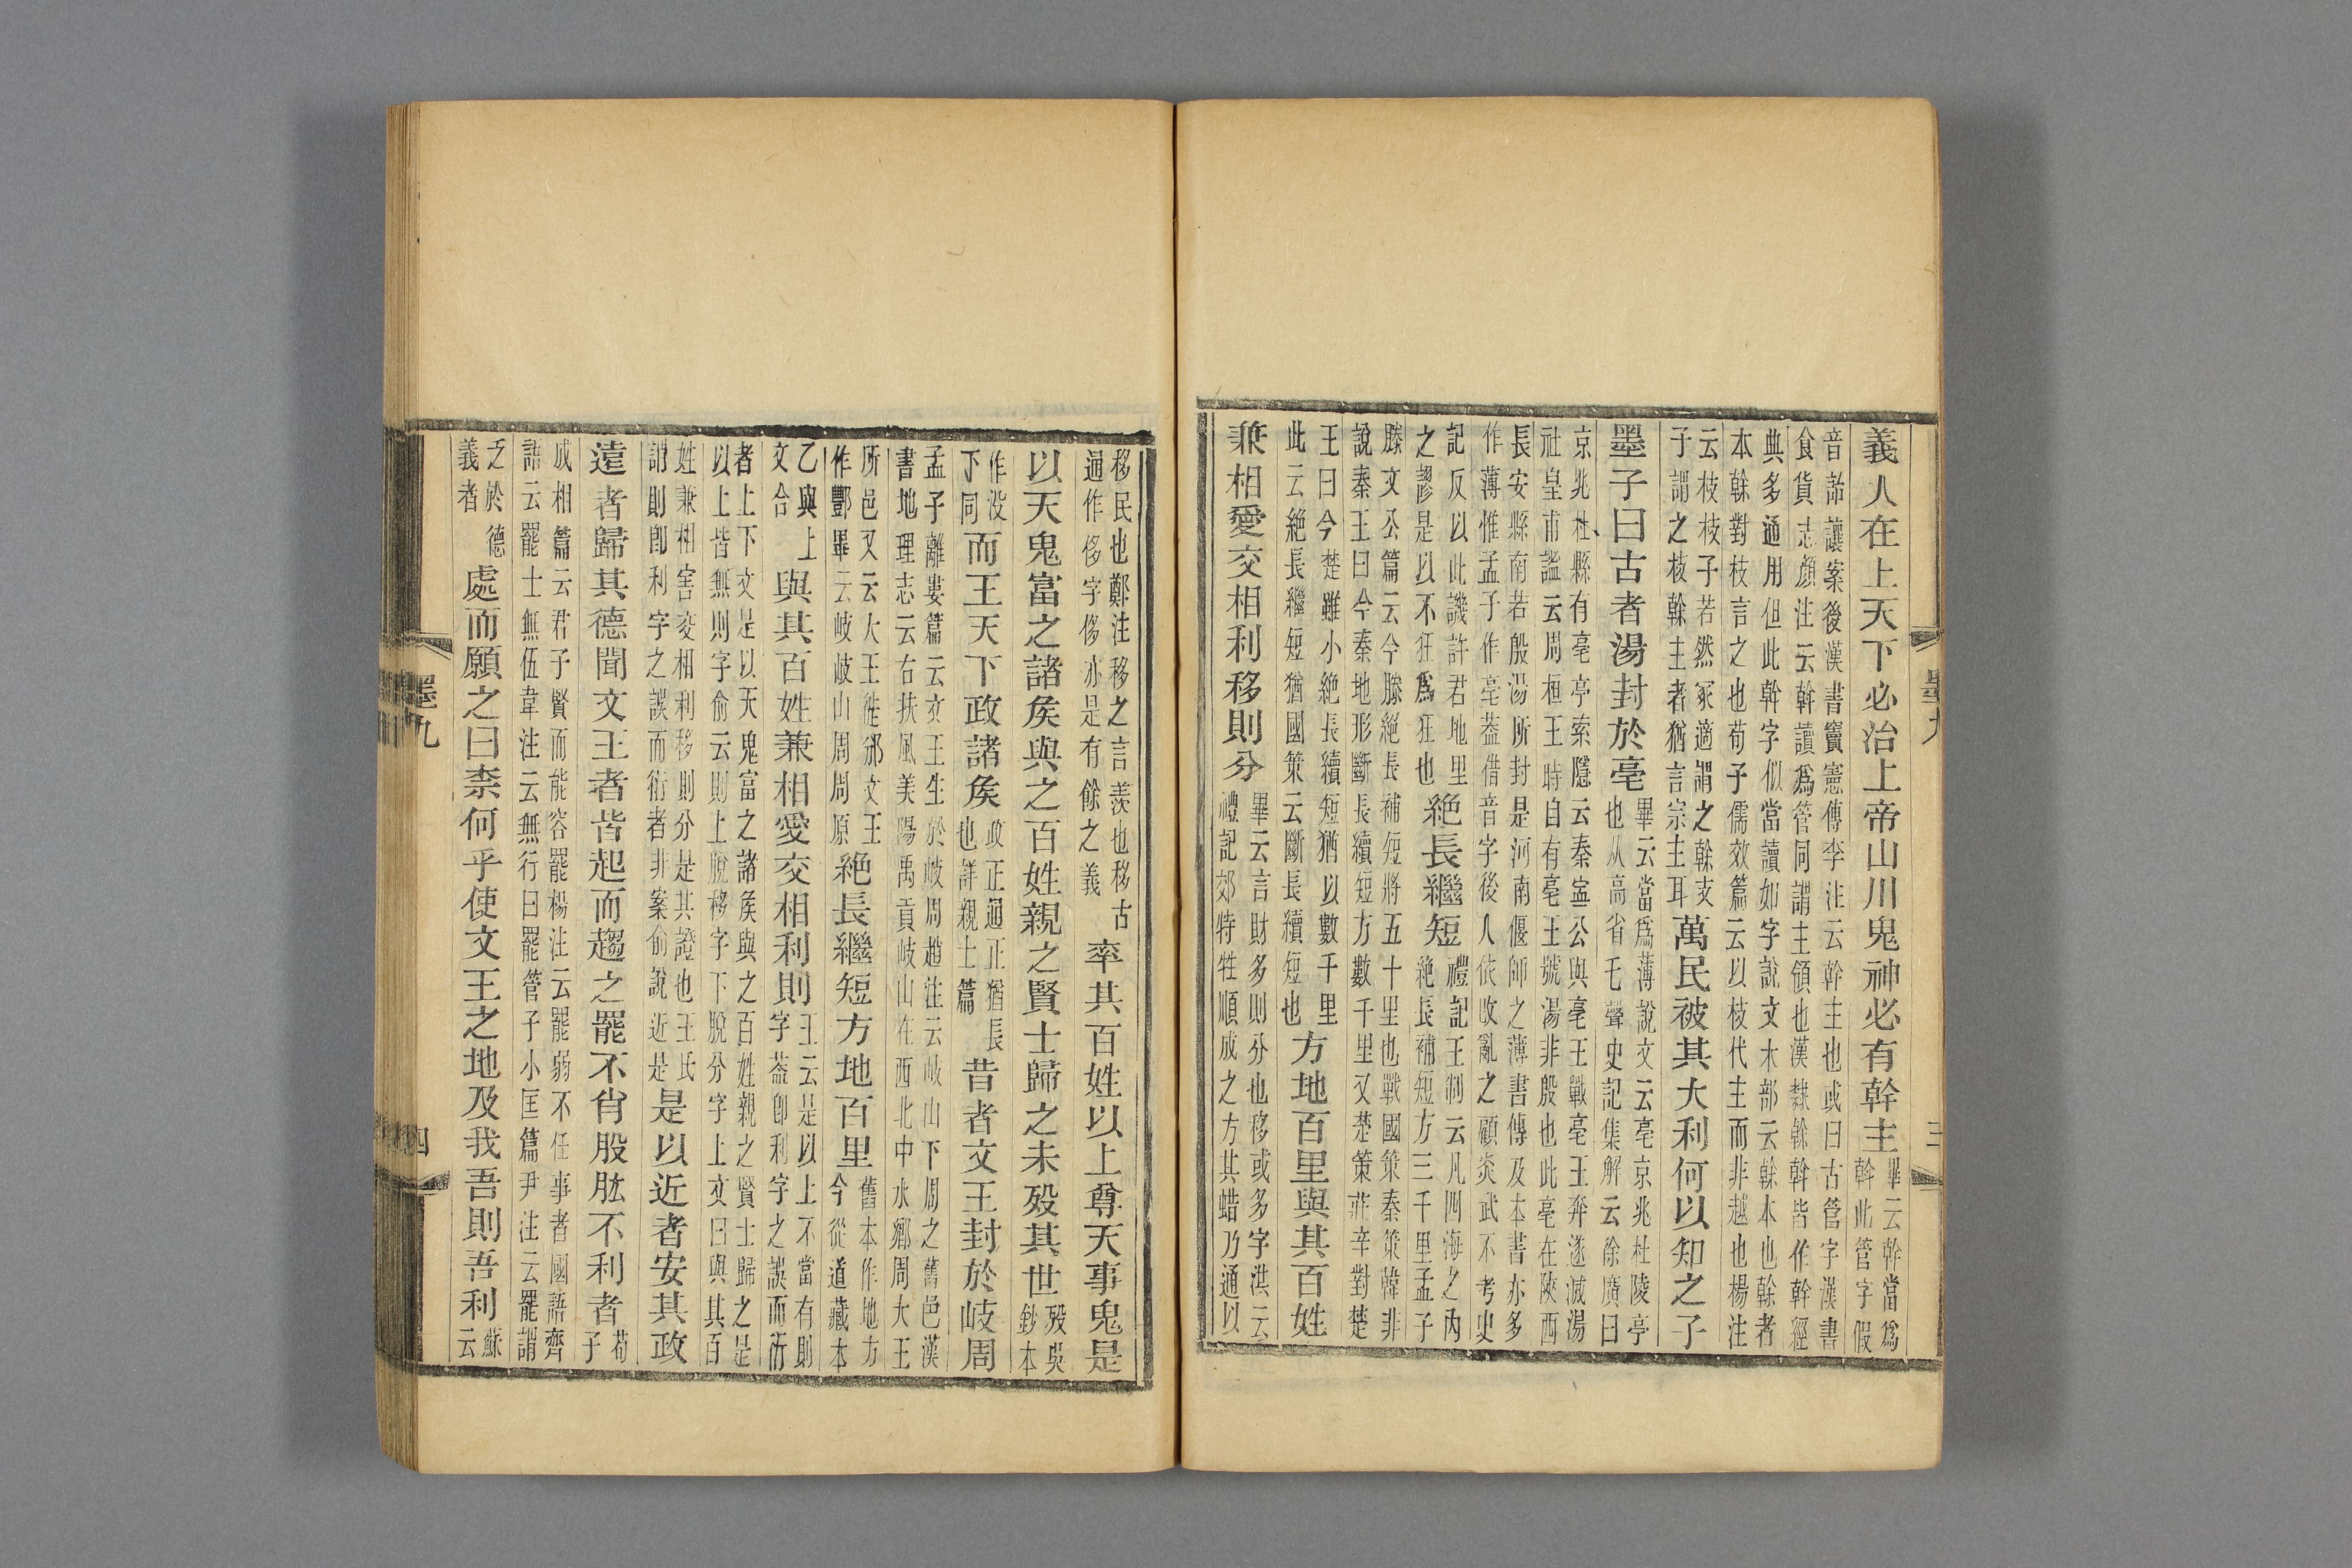 義人在上天下必治上帝山川鬼神必有幹主畢云幹當爲幹此管字假
音詁讓案後漢書竇憲傳李注云幹主也或曰古管字漢書
食貨志顏注云斡讀爲管同謂主領也漢隸榦斡皆作幹經
典多通用但此幹字似當讀如字說文木部云榦本也榦者
本榦對枝言之也荀子儒效篇云以枝代主而非越也楊注
云枝枝子若然冢適謂之榦支
子謂之枝榦主者猶言宗主耳萬民被其大利何以知之子
墨子曰古者湯封於亳畢云當爲薄說文云亳京兆杜陵亭也从高省乇聲史記集解云徐廣曰
京兆杜縣有亳亭索隱云秦寧公與亳王戰亳王奔遂滅湯
社皇甫謐云周桓王時自有亳王號湯非殷也此亳在陝西
長安縣南若殷湯所封是河南偃師之薄書傳及本書亦多
作薄惟孟子作亳蓋借音字後人依改亂之顧炎武不考史
記反以此譏許君地里
之謬是以不狂爲狂也絕長繼短禮記王制云凡四海之內絕長補短方三千里孟子
滕文公篇云今滕絕長補短將五十里也戰國策秦策韓非
說秦王曰今秦地形斷長續短方數千里又楚策莊辛對楚
王曰今楚雖小絕長續短猶以數千里
此云絕長繼短猶國策云斷長續短也方地百里與其百姓
兼相愛交相利移則分畢云言財多則分也移或多字洪云禮記郊特牲順成之方其蜡乃通以
移民也鄭注移之言羨也移古
通作侈字侈亦是有餘之義率其百姓以上尊天事鬼是
以天鬼富之諸矦與之百姓親之賢士歸之未歿其世歿吳鈔本
作没
下同而王天下政諸矦政正通正猶長也詳親士篇昔者文王封於岐周
孟子離婁篇云文王生於岐周趙注云岐山下周之舊邑漢
書地理志云右扶風美陽禹貢岐山在西北中水鄉周大王
所邑又云大王徙邠文王
作酆畢云岐岐山周周原絕長繼短方地百里舊本作地方今從道藏本
乙與上
文合與其百姓兼相愛交相利則王云是以上不當有則字葢卽利字之誤而衍
者上下文是以天鬼富之諸矦與之百姓親之賢士歸之是
以上皆無則字俞云則上脫移字下脫分字上文曰與其百
姓兼相害交相利移則分是其證也王氏
謂則卽利字之誤而衍者非案俞說近是是以近者安其政
遠者歸其德聞文王者皆起而趨之罷不肖股肱不利者荀子
成相篇云君子賢而能容罷楊注云罷弱不任事者國語齊
語云罷士無伍韋注云無行曰罷管子小匡篇尹注云罷謂
乏於德
義者處而願之曰柰何乎使文王之地及我吾則吾利蘇云
墨九
四